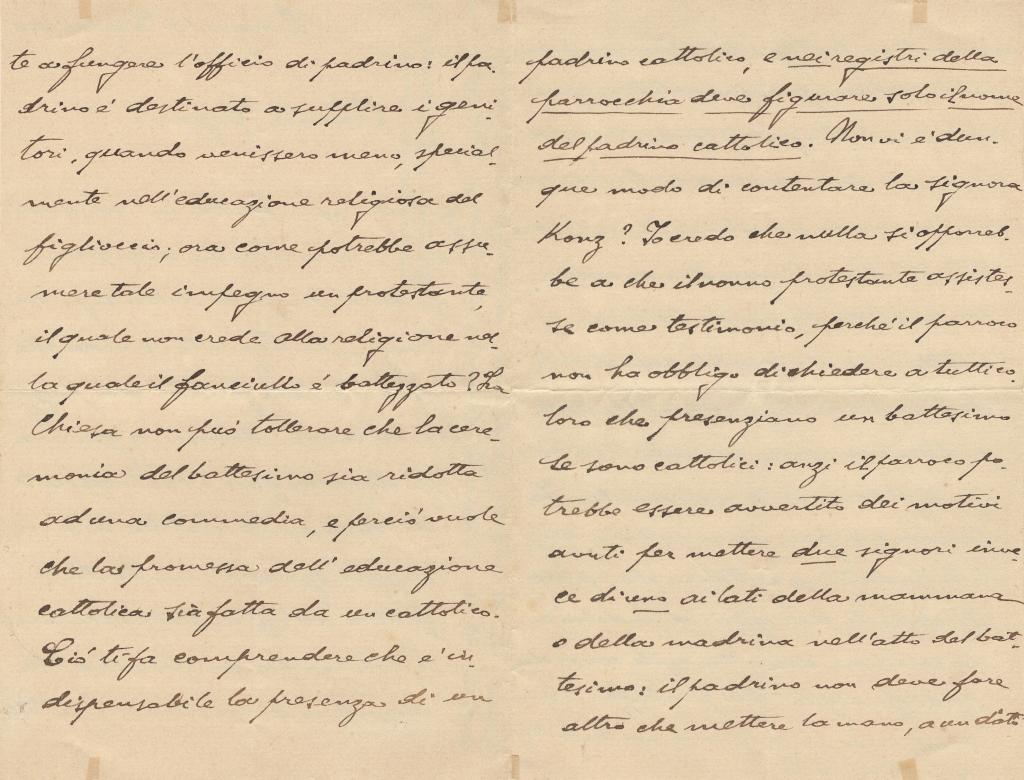 te a fungere l'officio di padrino: il pa-
drino é destinato a supplire i geni-
tori, quando venissero meno, special-
mente nell'educazione religiosa del
figlioccio; ora come potrebbe assu-
mere tale impegno un protestante,
il quale non crede alla religione nel-
la quale il fanciullo é battezzato? La
Chiesa non puó tollerare che la cere-
monia del battesimo sia ridotta
ad una commedia, e perció vuole
che la promessa dell'educazione
cattolica sia fatta da un cattolico.
Ció ti fa comprendere che e' in-
dispensabile la presenza di un
padrino cattolico, e nei registri della
parrocchia deve figurare solo il nome
del padrino cattolico. Non vi e' dun-
que modo di contentare la signora
Konz? Io credo che nulla si opporreb-
be a che il nonno protestante assistes-
se come testimonio, perche' il parroco
non ha obbligo di chiedere a tutti co-
loro che presenziano un battesimo
se sono cattolici: anzi il parroco po-
trebbe essere avvertito dei motivi
avuti per mettere due signori inve-
ce di uno ai lati della mammana
o della madrina nell'atto del bat-
tesimo: il padrino non deve fare
altro che mettere la mano, a un dato